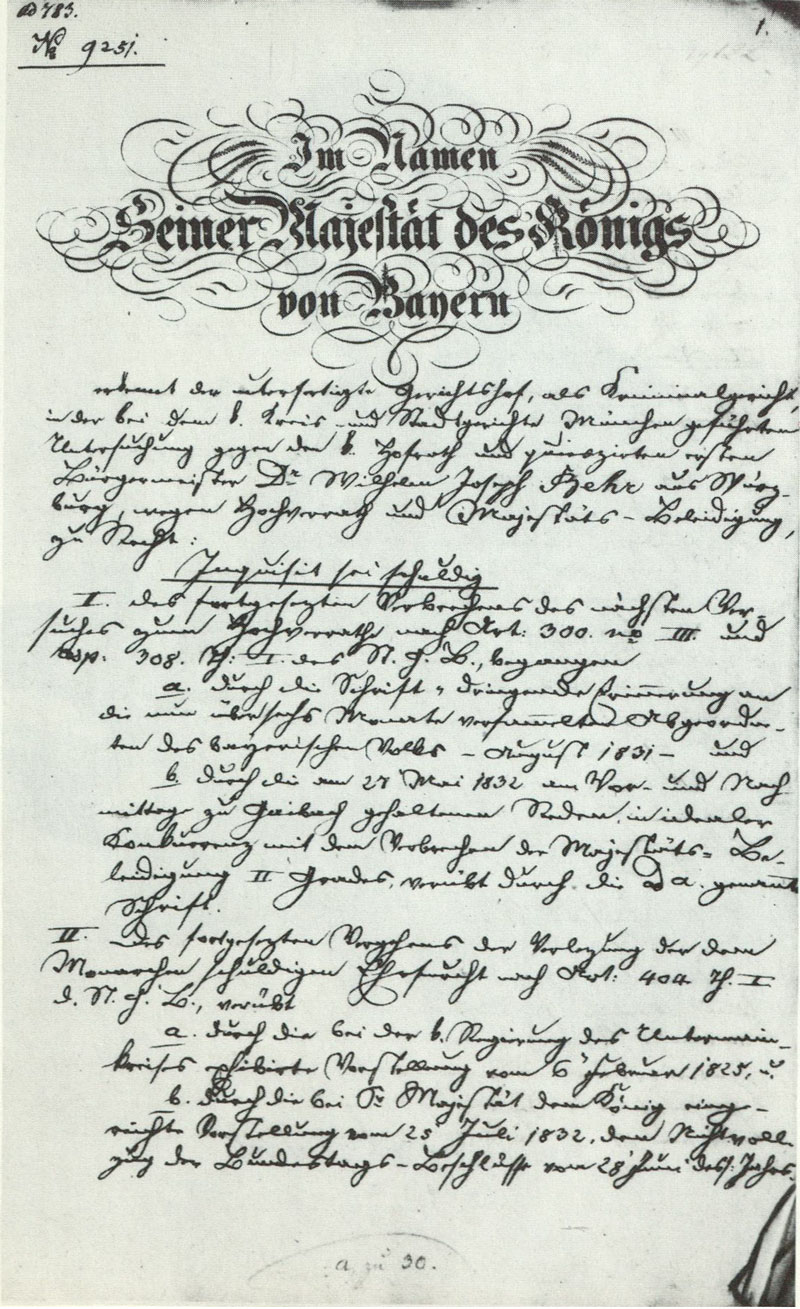 ad 783.
No 9251.
1.
Im Namen
Seiner Majestät des Königs
von Bayern
erkennt der unterfertigte Gerichtshof, als Kriminalgericht,
in der bei dem k. Kreis- und Stadtgerichte München geführten
Untersuchung gegen den k. Hofrath und quieszirten ersten
Bürgermeister Dr Wilhelm Joseph Behr aus Würz-
burg, wegen Hochverrath und Majestäts-Beleidigung,
zu Recht:
Inquisit sei schuldig
I. des fortgesezten Verbrechens des nächsten Ver-
suches zum Hochverrathe nach Art: 300. no III und
308. Th: I. des St. G. B., begangen
a. durch die Schrift „dringende Erinnerung an
die nun über sechs Monate versammelten Abgeordne-
ten des bayerischen Volks – August 1831 – und
b. durch die am 27 Mai 1832 am Vor- und Nach-
mittage zu Gaibach gehaltenen Reden, in idealer
Konkurrenz mit dem Verbrechen der Majestäts- Be-
leidigung II Grades, verübt durch die ad a. genannte
Schrift.
II. des fortgesezten Vergehens der Verlezung der dem
Monarchen schuldigen Ehrfurcht nach Art: 404 Th. I
d. St. G. B., verübt
a. durch die bei der k. Regierung des Untermain-
kreises exhibirte Vorstellung vom 6 Februar 1825, u.
b. durch die bei Sr Majestät dem König einge-
reichte Vorstellung vom 25 Juli 1832, den Nichtvoll-
zug der Bundestags-Beschlüsse vom 28 Juni dess. Jahrs
a zu 30.